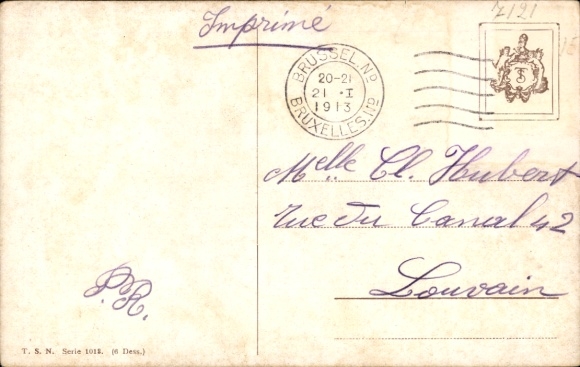 7121
Imprimé
BRUSSEL.Nᴼ
20-21
21 ·I
1913
BRUXELLES.Nᴼ
TS
Melle Cl. Hubert
rue du Canal 42
Louvain
P.R.
T. S. N. Serie 1018. (6 Dess.)